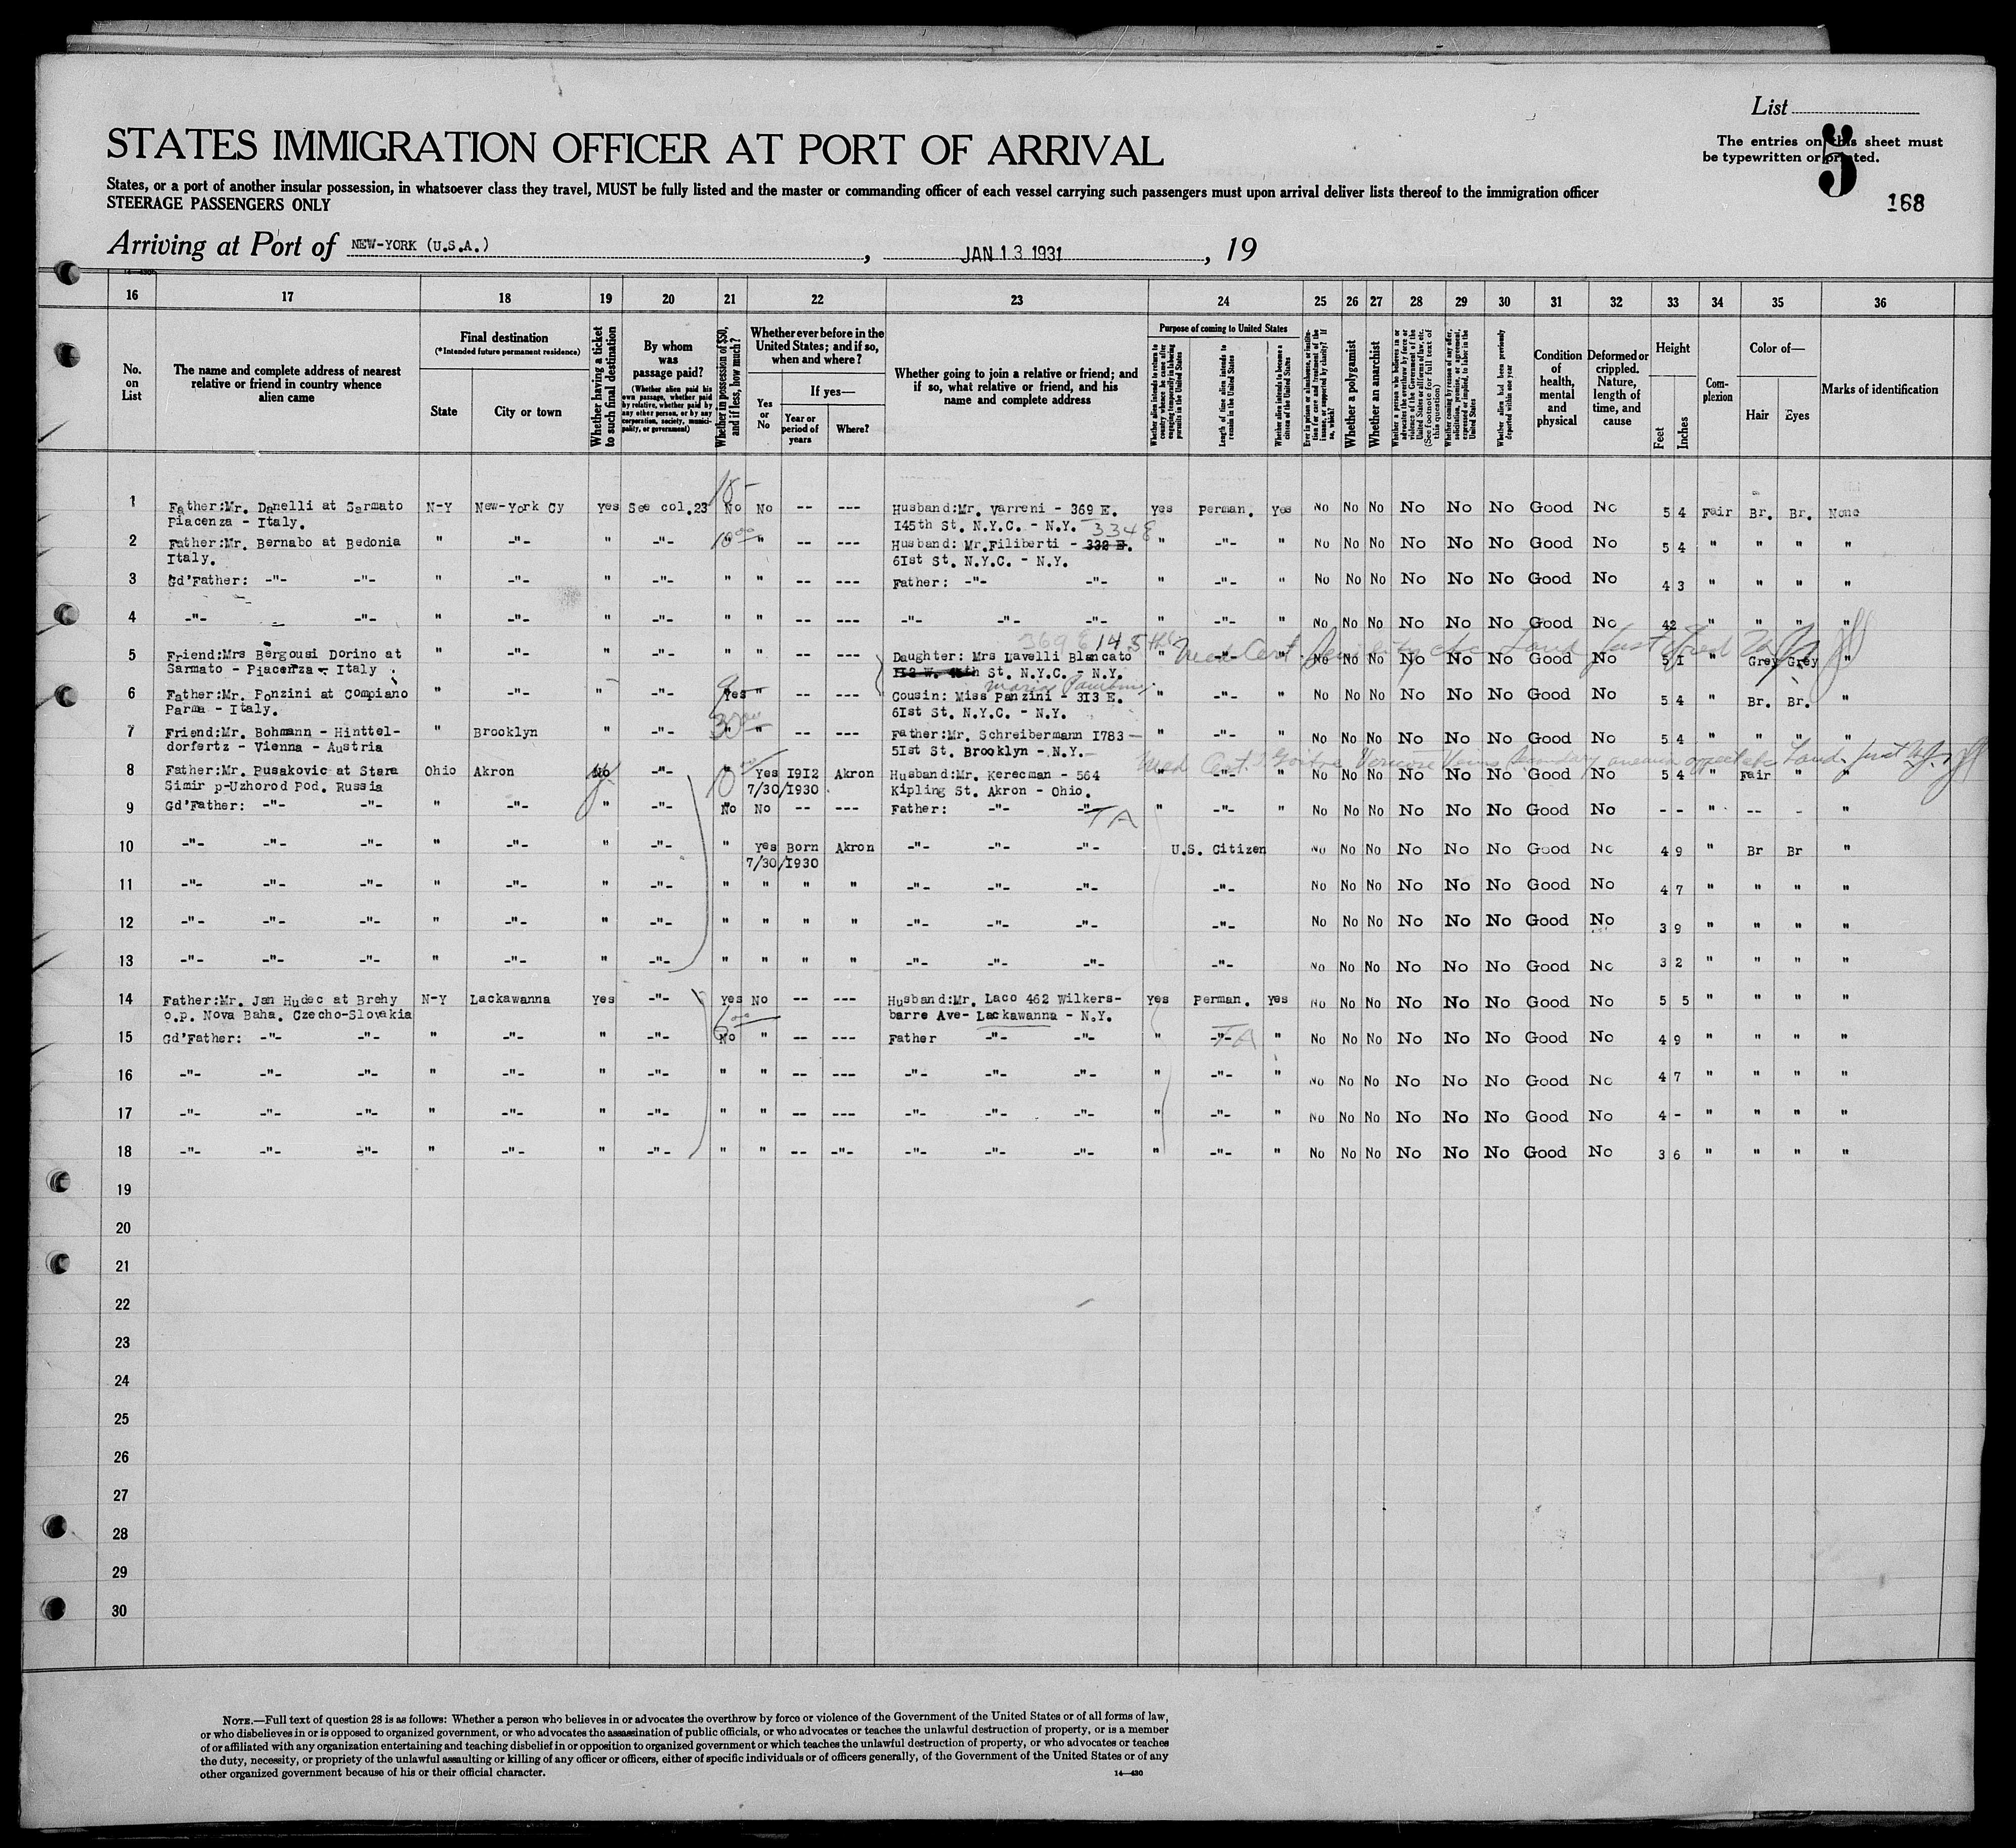 List
STATES IMMIGRATION OFFICER AT PORT OF ARRIVAL
The entries on this sheet must
be typewritten or printed.
5
168
States, or a port of another insular possession, in whatsoever class they travel, MUST be fully listed and the master or commanding officer of each vessel carrying such passengers must upon arrival deliver lists thereof to the immigration officer
STEERAGE PASSENGERS ONLY
Arriving at Port of NEW-YORK (U.S.A.) , JAN 13 1931 , 19
14—430
16 17 18 19 20 21 22 23 24 25 26 27 28 29 30 31 32 33 34 35 36
No. on List
The name and complete address of nearest relative or friend in country whence alien came
Final destination
(*Intended future permanent residence)
State
City or town
Whether having a ticket to such final destination
By whom was passage paid?
(Whether alien paid his own passage, whether paid by relative, whether paid by any other person, or by any corporation, society, municipality, or government)
Whether in possession of $50, and if less, how much?
Whether ever before in the United States; and if so, when and where?
Yes or No
If yes—
Year or period of years
Where?
Whether going to join a relative or friend; and if so, what relative or friend, and his name and complete address
Purpose of coming to United States
Whether alien intends to return to country whence he came after engaging temporarily in laboring pursuits in the United States
Length of time alien intends to remain in the United States
Whether alien intends to become a citizen of the United States
Ever in prison or almshouse, or institution for care and treatment of the insane, or supported by charity? If so, which?
Whether a polygamist
Whether an anarchist
Whether a person who believes in or advocates the overthrow by force or violence of the Government of the United States or all forms of law, etc. (See footnote for full text of this question)
Whether coming by reason of any offer, solicitation, promise, or agreement, expressed or implied, to labor in the United States
Whether alien had been previously deported within one year
Condition of health, mental and physical
Deformed or crippled. Nature, length of time, and cause
Height
Feet
Inches
Complexion
Color of—
Hair
Eyes
Marks of identification
15-
1 Father:Mr. Danelli at Sarmato N-Y New-York Cy yes See col.23 No No -- --- Husband:Mr. Varreni - 369 E. yes Perman. Yes No No No No No No Good No 5 4 Fair Br. Br. None
Piacenza - Italy. 145th St. N.Y.C. - N.Y. 334 E
2 Father:Mr. Bernabo at Bedonia " -"- " -"- 10 00 " -- --- Husband: Mr.Filiberti - 332 E. " -"- " No No No No No No Good No 5 4 " " " "
Italy. 61st St. N.Y.C. - N.Y.
3 Gd'Father: -"- -"- " -"- " -"- " " -- --- Father: -"- -"- " -"- " No No No No No No Good No 4 3 " " " "
4 -"- -"- " -"- " -"- " " -- --- -"- -"- -"- " -"- " No No No No No No Good No 42 " " " "
369 E 145th Med Cert
5 Friend:Mrs Bergousi Dorino at " -"- " -"- " " -- --- Daughter: Mrs Lavelli Blancato " -"- " No No No No No No Good No 5 1 " Grey Grey "
Sarmato - Piacenza - Italy St. N.Y.C. - N.Y.
6 Father:Mr. Ponzini at Compiano " -"- " -"- Yes " -- --- Cousin: Miss Panzini - 313 E. " -"- " No No No No No No Good No 5 4 " Br. Br. "
Parma - Italy. 61st St. N.Y.C. - N.Y.
30 00
7 Friend:Mr. Bohmann - Hinttel- " Brooklyn " -"- " " -- --- Father:Mr. Schreibermann 1783 - " -"- " No No No No No No Good No 5 4 " " " "
dorfertz - Vienna - Austria 51st St. Brooklyn - N.Y.
Med Cert Goitre Varicose Veins Secondary anemia
8 Father:Mr. Pusakovic at Stara Ohio Akron No -"- " Yes 1912 Akron Husband:Mr. Kerecman - 564 " -"- " No No No No No No Good No 5 4 " Fair " "
Simir p-Uzhorod Pod. Russia 10 7/30/1930 Kipling St. Akron - Ohio.
9 Gd'Father: -"- -"- " -"- " -"- No No -- --- Father: -"- -"- " -"- " No No No No No No Good No - - " -- - "
TA
10 -"- -"- -"- " -"- " -"- " yes Born Akron -"- -"- -"- U.S. Citizen No No No No No No Good No 4 9 " Br Br "
7/30/1930
11 -"- -"- -"- " -"- " -"- " " " " -"- -"- -"- -"- No No No No No No Good No 4 7 " " " "
12 -"- -"- -"- " -"- " -"- " " " " -"- -"- -"- -"- No No No No No No Good No 3 9 " " " "
13 -"- -"- -"- " -"- " -"- " " " " -"- -"- -"- -"- No No No No No No Good No 3 2 " " " "
14 Father:Mr. Jan Hudec at Brehy N-Y Lackawanna Yes -"- Yes No -- --- Husband:Mr. Laco 462 Wilkers- Yes Perman. Yes No No No No No No Good No 5 5 " " " "
o.p. Nova Baha. Czecho-Slovakia barre Ave- Lackawanna - N.Y.
15 Gd'Father: -"- -"- " -"- " -"- No " -- --- Father -"- -"- " -"- " No No No No No No Good No 4 9 " " " "
TA
16 -"- -"- -"- " -"- " -"- " " -- --- -"- -"- -"- " -"- " No No No No No No Good No 4 7 " " " "
17 -"- -"- -"- " -"- " -"- " " -- --- -"- -"- -"- " -"- " No No No No No No Good No 4 - " " " "
18 -"- -"- -"- " -"- " -"- " " -- -"- -"- -"- -"- " -"- " No No No No No No Good No 3 6 " " " "
19
20
21
22
23
24
25
26
27
28
29
30
NOTE.—Full text of question 28 is as follows: Whether a person who believes in or advocates the overthrow by force or violence of the Government of the United States or of all forms of law,
or who disbelieves in or is opposed to organized government, or who advocates the assassination of public officials, or who advocates or teaches the unlawful destruction of property, or is a member
of or affiliated with any organization entertaining and teaching disbelief in or opposition to organized government or which teaches the unlawful destruction of property, or who advocates or teaches
the duty, necessity, or propriety of the unlawful assaulting or killing of any officer or officers, either of specific individuals or of officers generally, of the Government of the United States or of any
other organized government because of his or their official character.
14—430